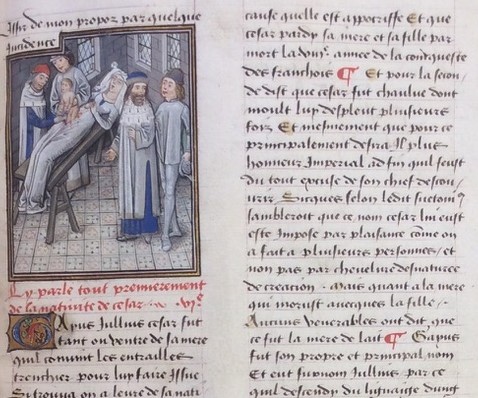 Issir de mon propoz par quelque
incidence
Cy parle tout premierement
de la nativite de cesar
Gayus Jullius cesar fut
tant ou ventre de sa mere
quil convint les entrailles
trenchier pour luy faire Issue
Si trouva on a leure de sa nati
cause quelle est appocriffe Et que
cesar perdy sa mere et sa fille par
mort la annee de la conqueste
des franchois Et pour la secon
de dist que cesar fut chaulve dont
moult luy despleut plusieurs
fois Et mesmement que pour ce
principalement desira Il plus
honneur Imperial ad fin quil feust
du tout excuse de son chief descou
vrir Sicques selon ledit suetom
sambleroit que ce nom cesar luy eust
este Impose par plaisance come on
a fait a plusieurs personnes et
non pas par cheveleure desnaturee
de creation mais quant a la mere
qui morust avecques la fille
Aucuns venerables ont dit que
ce fut la mere de lait Gayus
fut son propre et principal nom
Et eut surnom Jullius par ce
quil descendy du lignaige dung